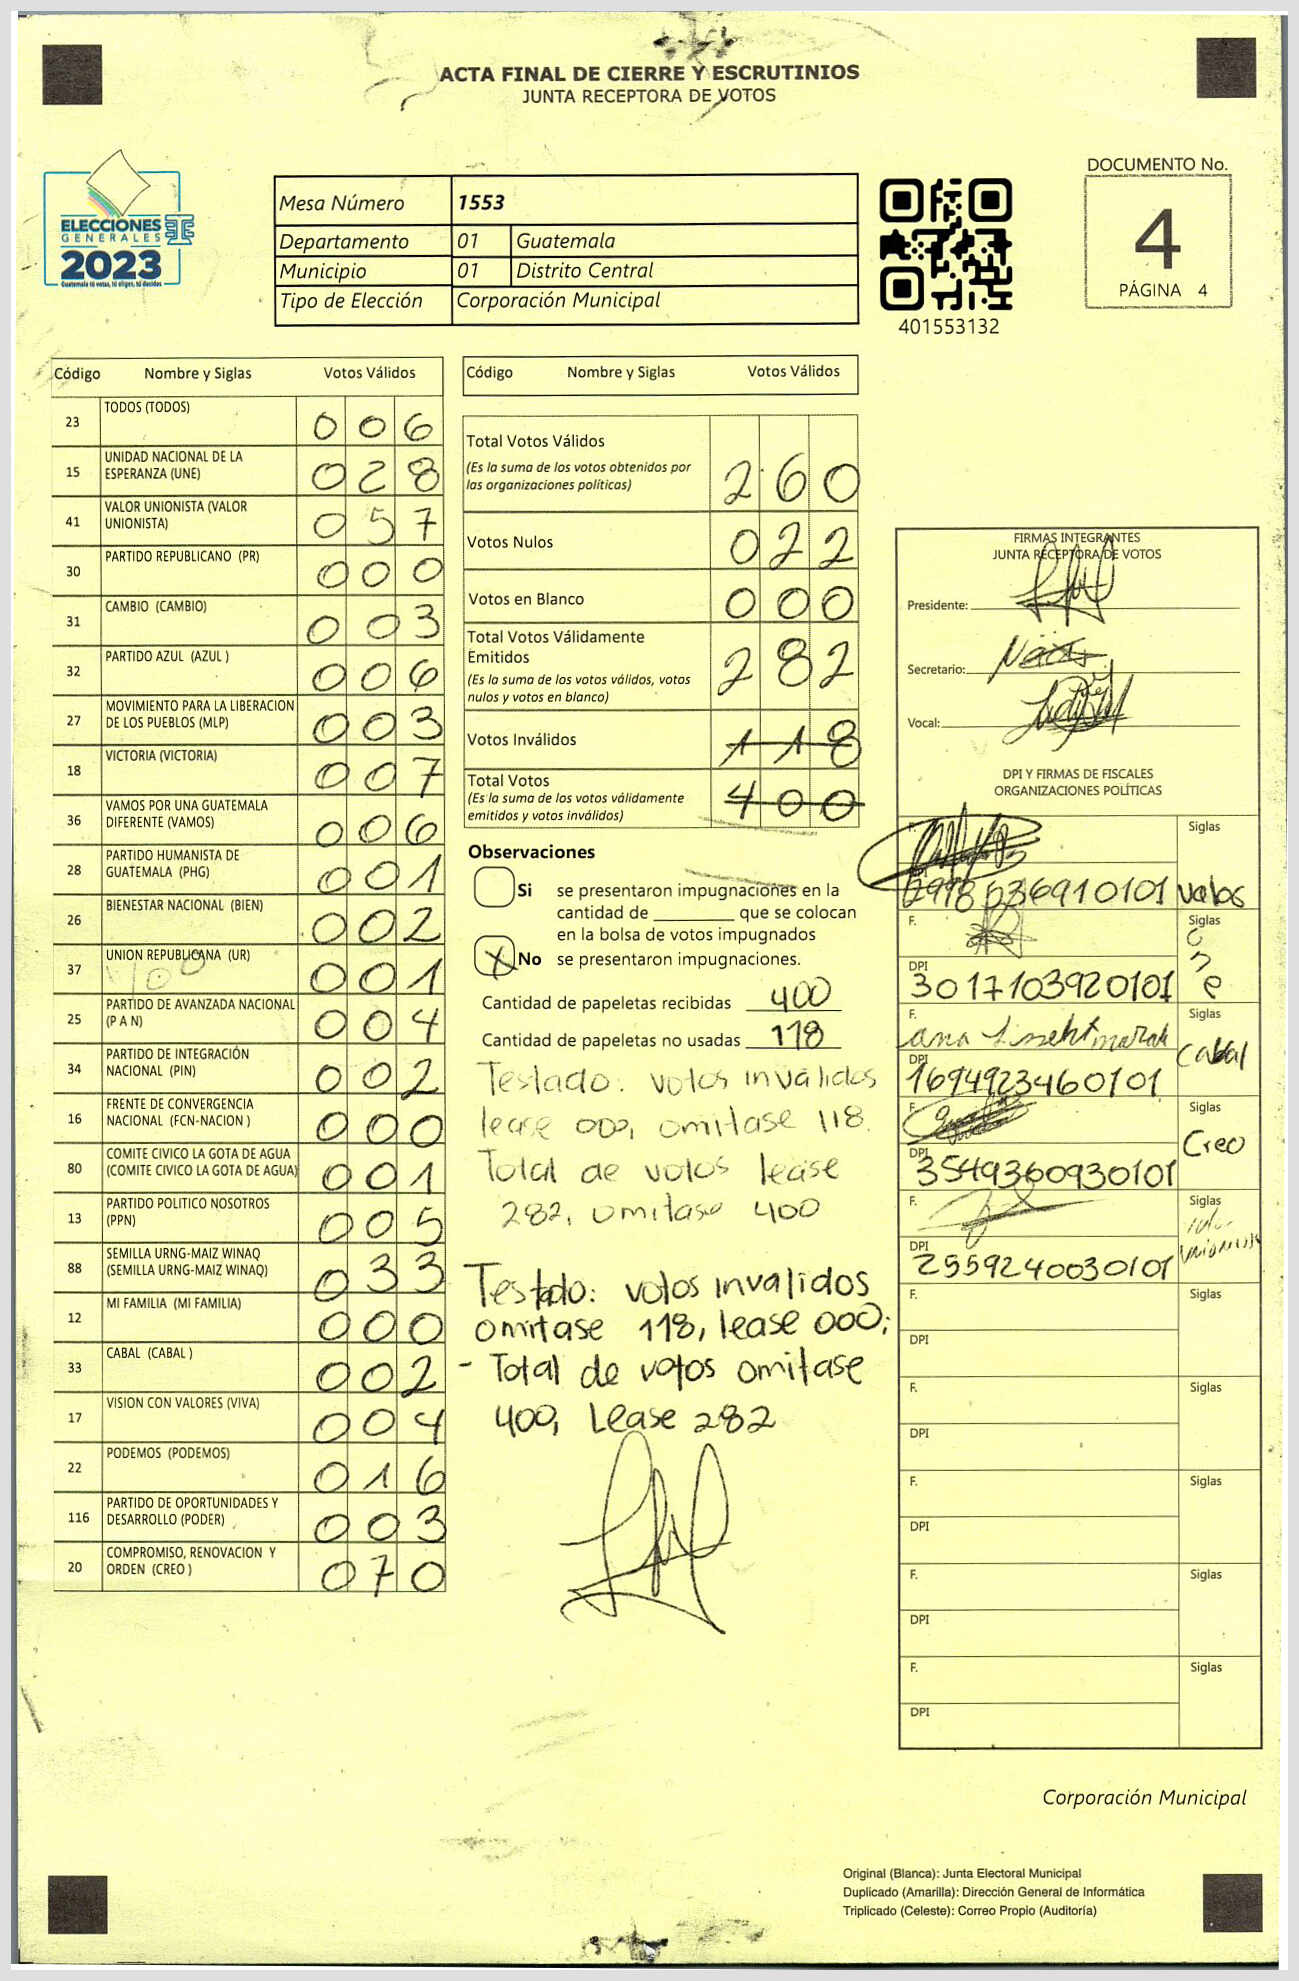 ACTA FINAL DE CIERRE Y ESCRUTINIOS
JUNTA RECEPTORA DE VOTOS
ELECCIONES
GENERALES
2023
Guatemala tú votas, tú eliges, tú decides
Mesa Número 1553
Departamento 01 Guatemala
Municipio 01 Distrito Central
Tipo de Elección Corporación Municipal
401553132
DOCUMENTO No.
4
PÁGINA 4
Código Nombre y Siglas Votos Válidos
23 TODOS (TODOS) 006
15 UNIDAD NACIONAL DE LA ESPERANZA (UNE) 028
41 VALOR UNIONISTA (VALOR UNIONISTA) 057
30 PARTIDO REPUBLICANO (PR) 000
31 CAMBIO (CAMBIO) 003
32 PARTIDO AZUL (AZUL ) 006
27 MOVIMIENTO PARA LA LIBERACION DE LOS PUEBLOS (MLP) 003
18 VICTORIA (VICTORIA) 007
36 VAMOS POR UNA GUATEMALA DIFERENTE (VAMOS) 006
28 PARTIDO HUMANISTA DE GUATEMALA (PHG) 001
26 BIENESTAR NACIONAL (BIEN) 002
37 UNION REPUBLICANA (UR) 001
25 PARTIDO DE AVANZADA NACIONAL (P A N) 004
34 PARTIDO DE INTEGRACIÓN NACIONAL (PIN) 002
16 FRENTE DE CONVERGENCIA NACIONAL (FCN-NACION ) 000
80 COMITE CIVICO LA GOTA DE AGUA (COMITE CIVICO LA GOTA DE AGUA) 001
13 PARTIDO POLITICO NOSOTROS (PPN) 005
88 SEMILLA URNG-MAIZ WINAQ (SEMILLA URNG-MAIZ WINAQ) 033
12 MI FAMILIA (MI FAMILIA) 000
33 CABAL (CABAL ) 002
17 VISION CON VALORES (VIVA) 004
22 PODEMOS (PODEMOS) 016
116 PARTIDO DE OPORTUNIDADES Y DESARROLLO (PODER) 003
20 COMPROMISO, RENOVACION Y ORDEN (CREO ) 070
Código Nombre y Siglas Votos Válidos
Total Votos Válidos 260
(Es la suma de los votos obtenidos por
las organizaciones políticas)
Votos Nulos 022
Votos en Blanco 000
Total Votos Válidamente
Emitidos 282
(Es la suma de los votos válidos, votos
nulos y votos en blanco)
Votos Inválidos 118
Total Votos 400
(Es la suma de los votos válidamente
emitidos y votos inválidos)
Observaciones
Si se presentaron impugnaciones en la
cantidad de ________ que se colocan
en la bolsa de votos impugnados
X No se presentaron impugnaciones.
Cantidad de papeletas recibidas 400
Cantidad de papeletas no usadas 118
Testado: votos inválidos
lease 000, omitase 118.
Total de votos lease
282, omitase 400
Testado: votos invalidos
omitase 118, lease 000;
- Total de votos omitase
400, Lease 282
FIRMAS INTEGRANTES
JUNTA RECEPTORA DE VOTOS
Presidente:
Secretario:
Vocal:
DPI Y FIRMAS DE FISCALES
ORGANIZACIONES POLÍTICAS
F. Siglas
F. Siglas
une
DPI
3017103920101
F. Siglas
Cabal
DPI
1694923460101
F. Siglas
Creo
DPI
3549360930101
F. Siglas
DPI
2559240030101
F. Siglas
DPI
F. Siglas
DPI
F. Siglas
DPI
F. Siglas
DPI
F. Siglas
DPI
Corporación Municipal
Original (Blanca): Junta Electoral Municipal
Duplicado (Amarilla): Dirección General de Informática
Triplicado (Celeste): Correo Propio (Auditoría)